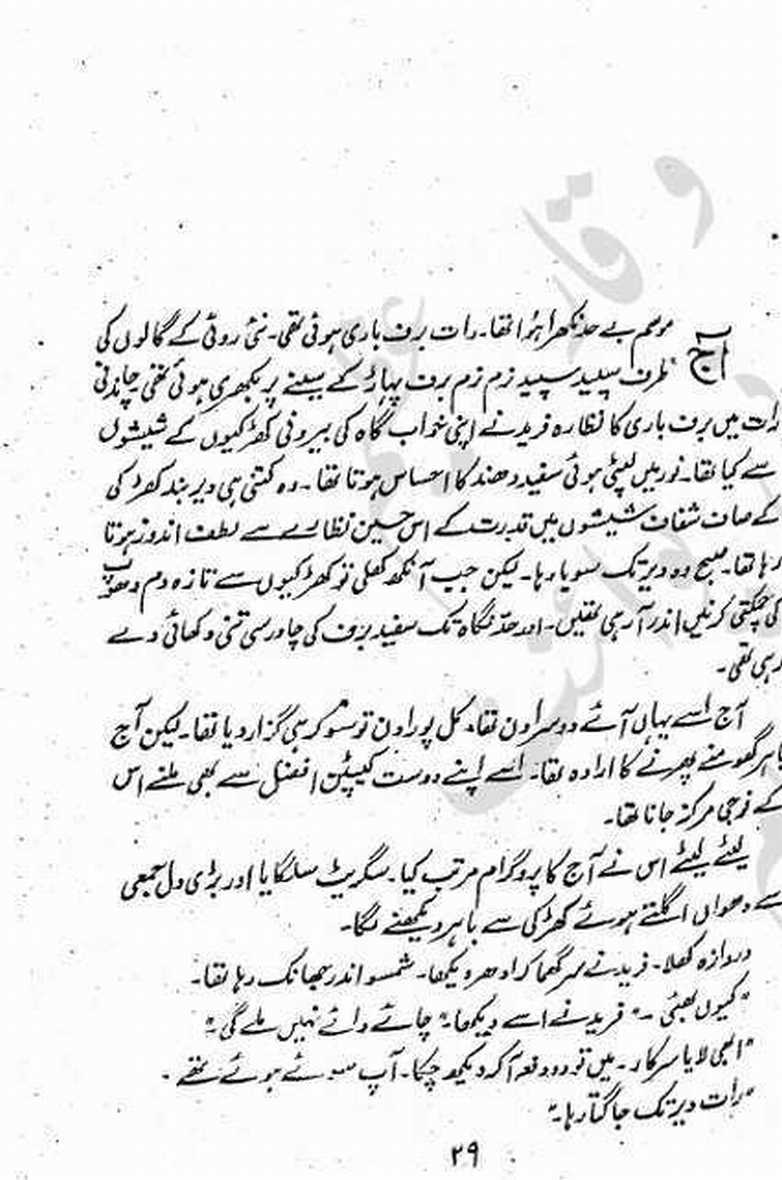 آج موسم بے حد نکھرا ہؤا تھا۔ رات برف باری ہوئی تھی۔ نئی روئی کے گالوں کی
طرف سپید سپید نرم نرم برف پہاڑ کے سینے پر بکھری ہوئی تھی چاندنی
رات میں برف باری کا نظارہ فرید نے اپنی خواب گاہ کی بیرونی کھڑکیوں کے شیشوں
سے کیا تھا۔ نور میں لپٹی ہوئی سفید دھند کا احساس ہوتا تھا۔ وہ کتنی ہی دیر بند کھڑکی
کے صاف شفاف شیشوں میں قدرت کے اس حسین نظارے سے لطف اندوز ہوتا
رہا تھا۔ صبح وہ دیر تک سویا رہا۔ لیکن جب آنکھ کھلی تو کھڑکیوں سے تازہ دم دھوپ
کی چمکتی کرنیں اندر آ رہی تھیں۔ اور حدِ نگاہ تک سفید برف کی چادر سی تنی دکھائی دے
رہی تھی۔
آج اسے یہاں آئے دوسرا دن تھا۔ کل پورا دن تو سو کر ہی گزار دیا تھا۔ لیکن آج
باہر گھومنے پھرنے کا ارادہ تھا۔ اسے اپنے دوست کیپٹن افضل سے بھی ملنے اس
کے فوجی مرکز جانا تھا۔
لیٹے لیٹے اس نے آج کا پروگرام مرتب کیا۔ سگریٹ سلگایا اور بڑی دل جمعی
سے دھواں اگلتے ہوئے کھڑکی سے باہر دیکھنے لگا۔
دروازہ کھلا۔ فرید نے سر گھما کر ادھر دیکھا۔ شمسو اندر جھانک رہا تھا۔
"کیوں بھئی۔" فرید نے اسے دیکھا۔ "چائے وائے نہیں ملے گی۔"
"ابھی لایا سرکار۔ میں تو دو دفعہ آ کر دیکھ چکا۔ آپ سوئے ہوئے تھے۔
"رات دیر تک جاگتا رہا۔"
۲۹